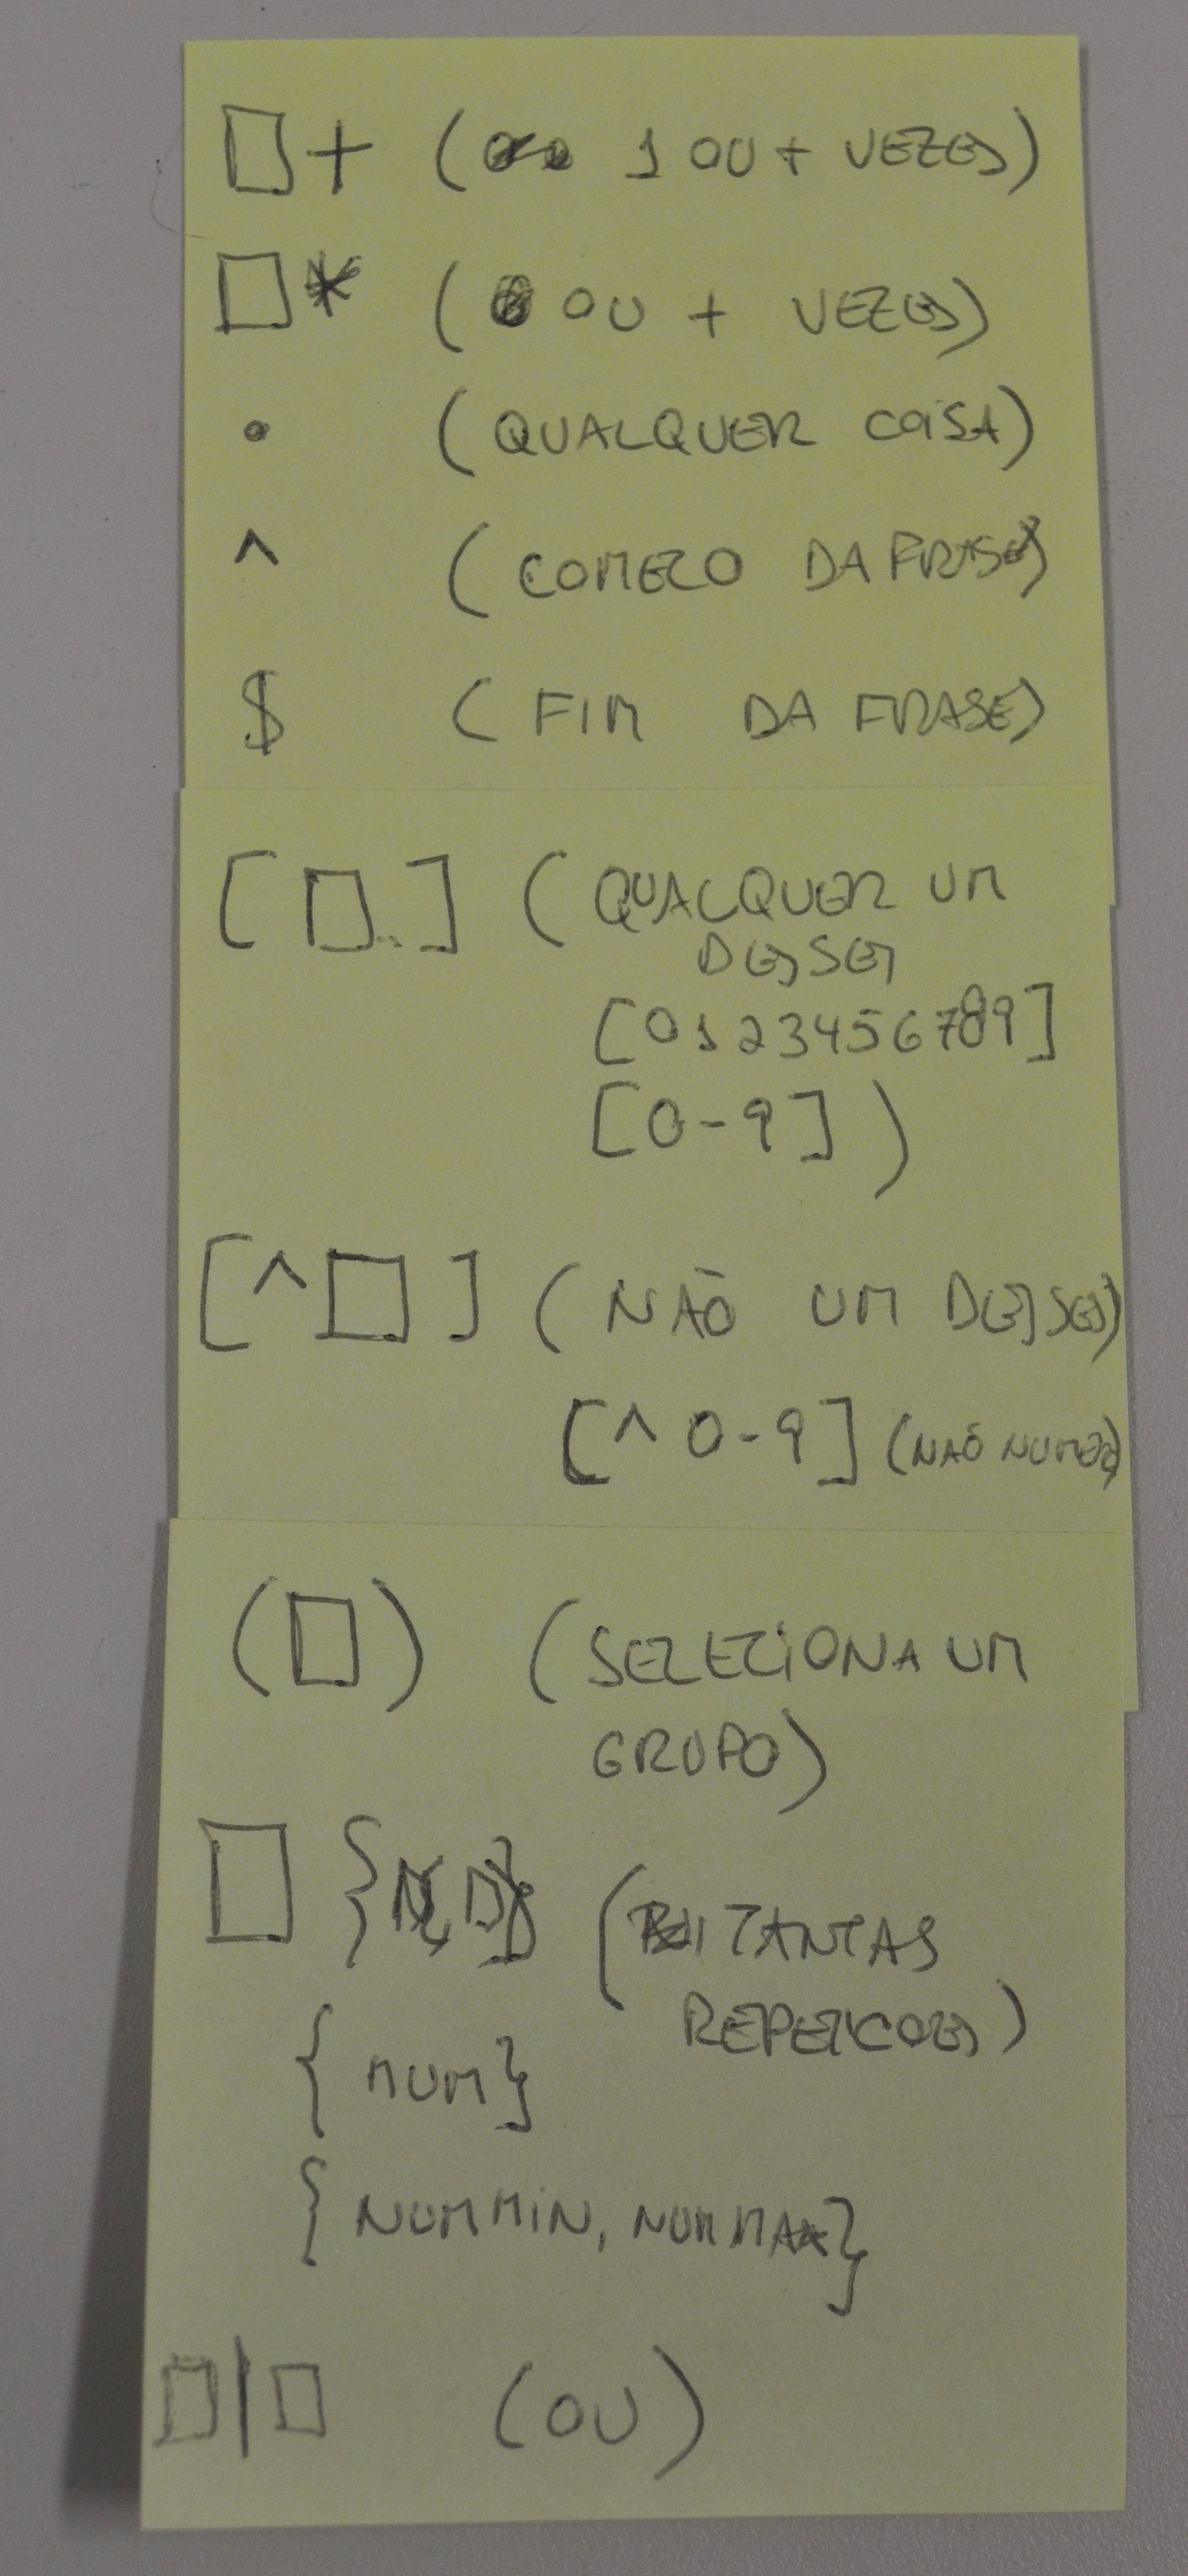 □+ ( 1 OU + VEZES)
□* (0 OU + VEZES)
. (QUALQUER COISA)
^ (COMECO DA FRASE)
$ (FIM DA FRASE)
[□..] (QUALQUER UM
DESSES
[0123456789]
[0-9])
[^□] (NÃO UM DESSES)
[^0-9] (NÃO NUMERO)
(□) (SELECIONA UM
GRUPO)
□ { (TANTAS
REPETICOES)
{NUM}
{NUMMIN, NUMMAX}
□|□ (OU)